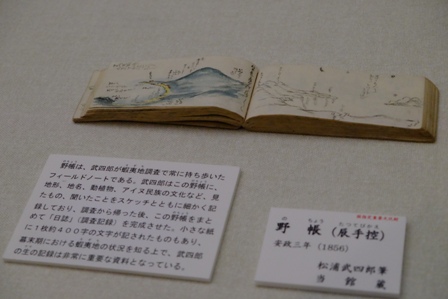 野帳は、武四郎が蝦夷地調査で常に持ち歩いた
フィールドノートである。武四郎はこの野帳に、
地形、地名、動植物、アイヌ民族の文化など、見
たもの、聞いたことをスケッチとともに細かく記
録しており、調査から帰った後、この野帳をまと
めて「日誌」(調査記録)を完成させた。小さな紙
に1枚約400字の文字が記されたものもあり、
幕末期における蝦夷地の状況を知る上で、武四郎
の生の記録は非常に重要な資料となっている。
野帳(辰手控)
安政三年(1856)
松浦武四郎筆
当館蔵